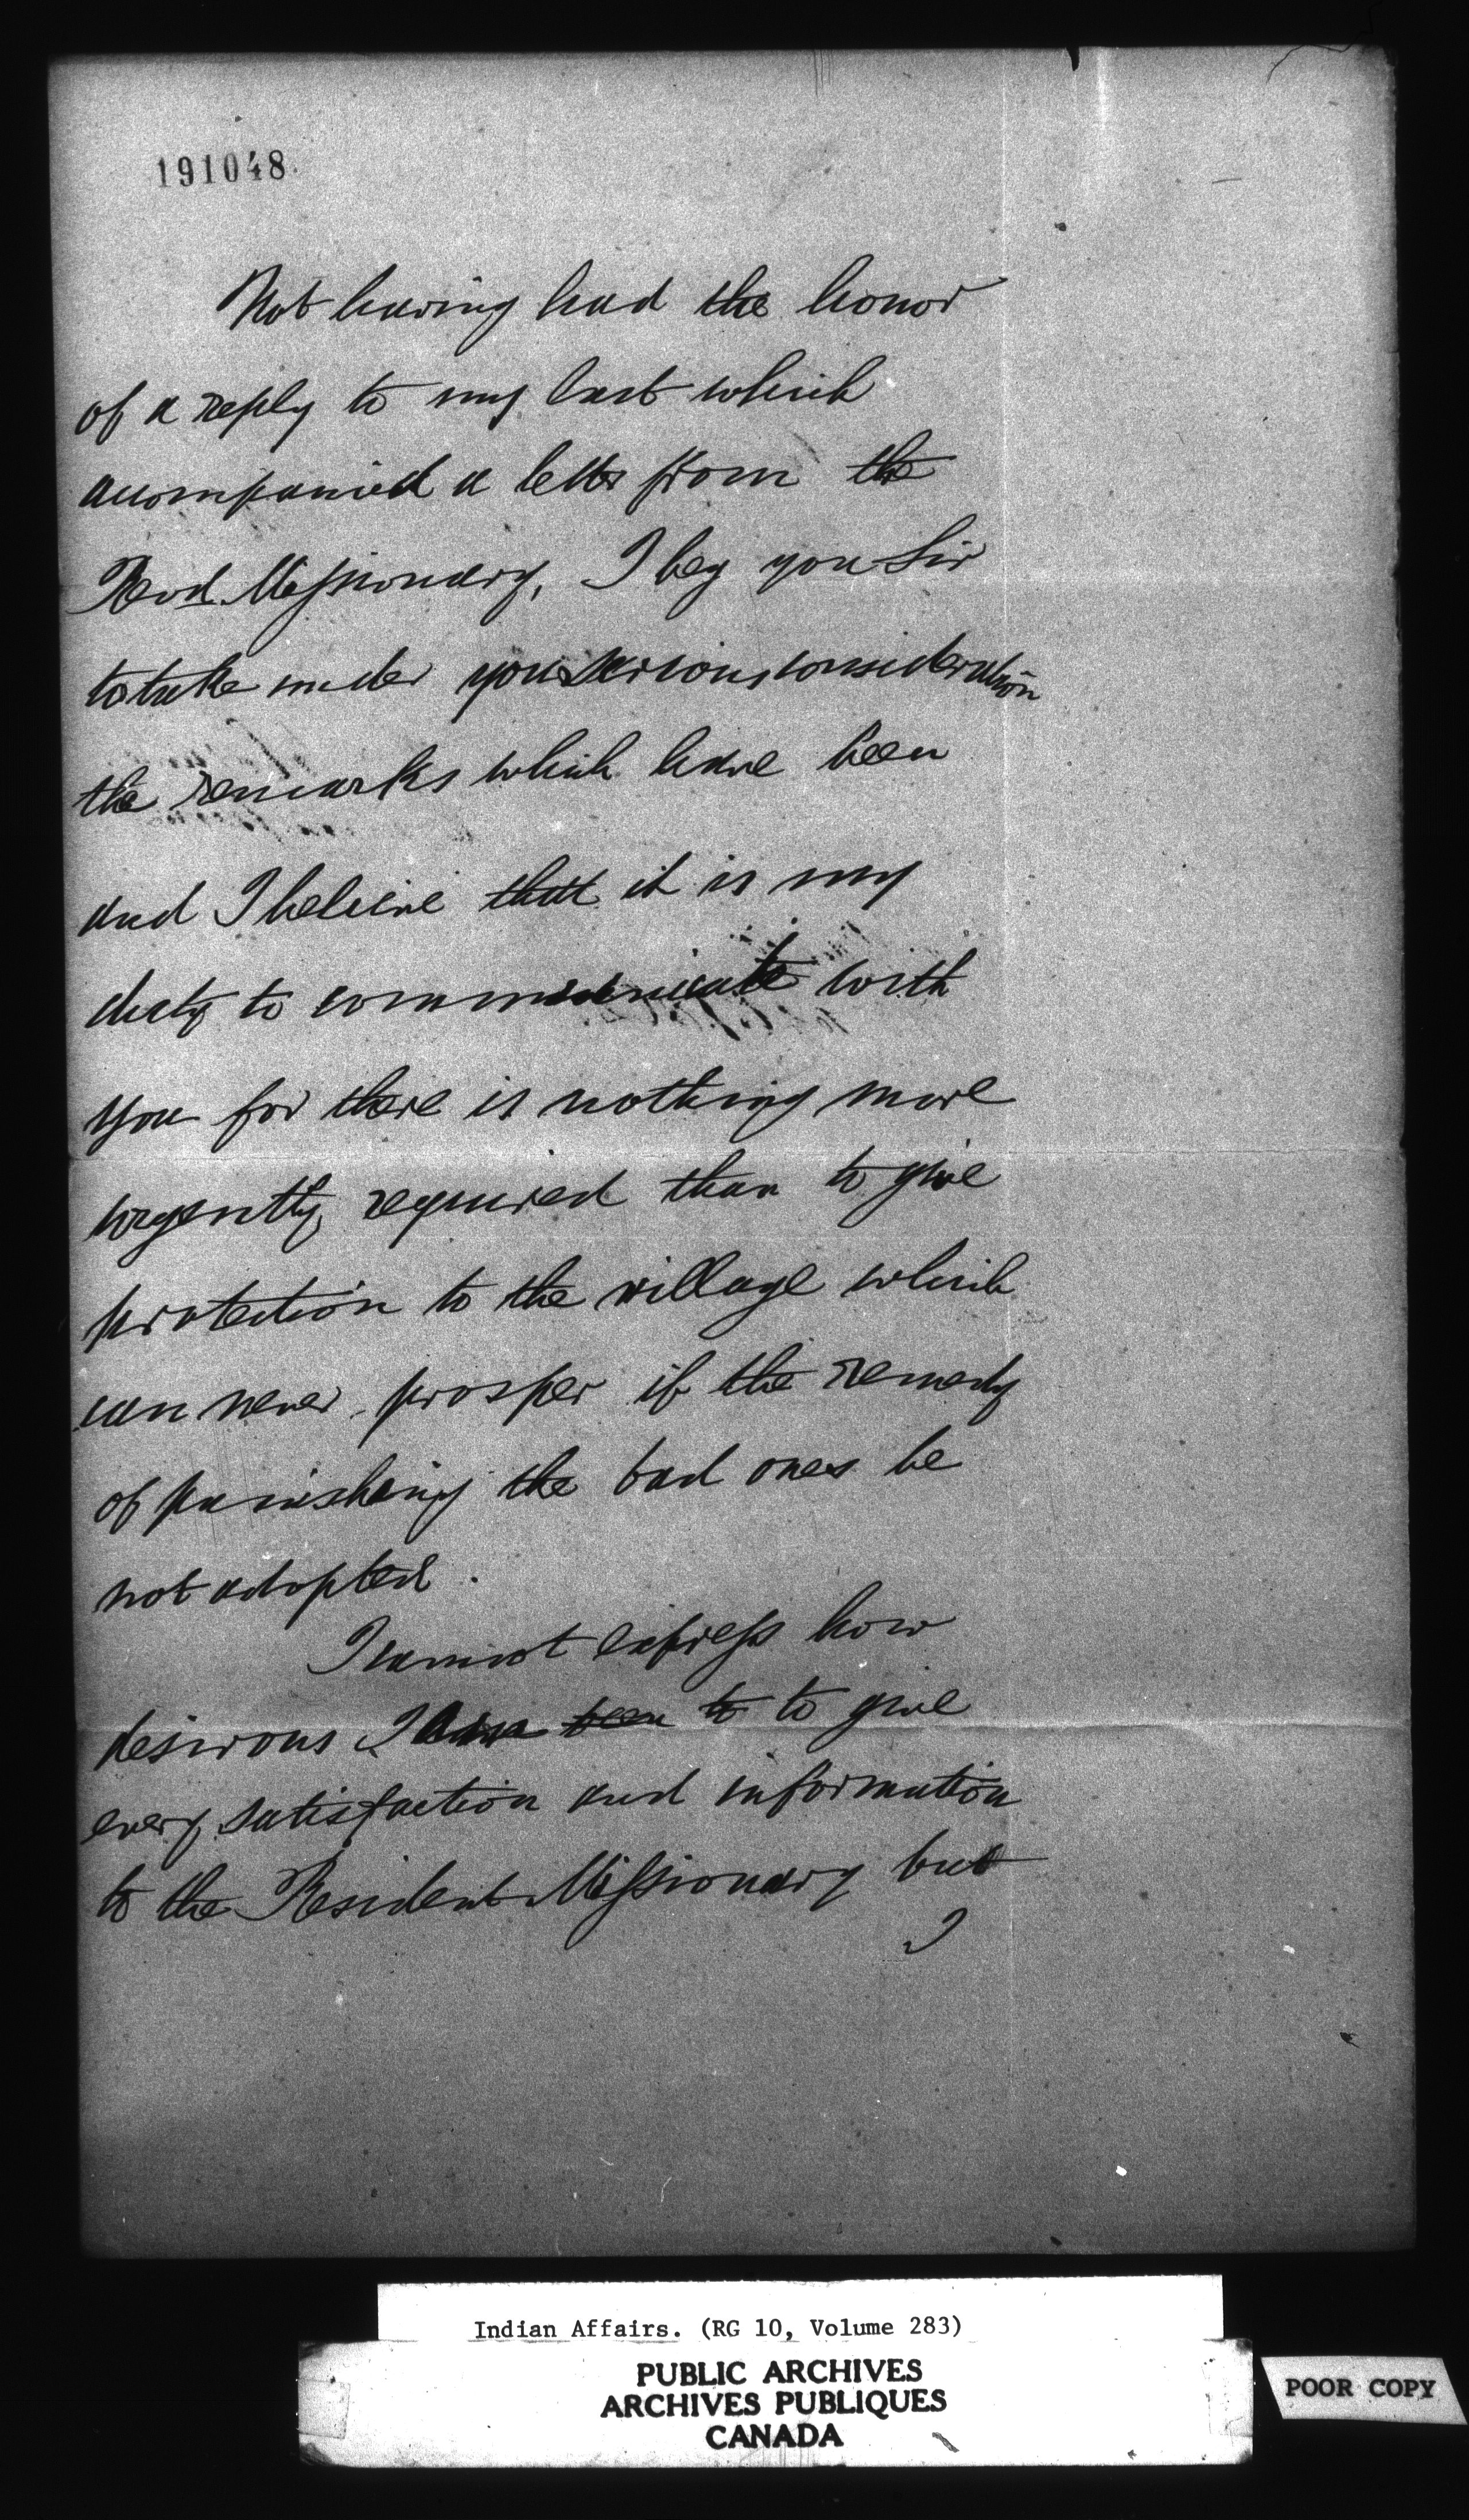 191048
Not having had the honor
of a reply to my last which
accompanied a letter from the
Revd. Missionary, I beg you Sir
to take under your serious consideration
the remarks which have been
and I believe that it is my
duty to communicate with
you for there is nothing more
urgently required than to give
protection to the village which
can never prosper if the remedy
of punishing the bad ones be
not adopted.
I cannot express how
desirous I am been to to give
every satisfaction and information
to the Resident Missionary but
I
Indian Affairs. (RG 10, Volume 283)
PUBLIC ARCHIVES
ARCHIVES PUBLIQUES
CANADA
POOR COPY